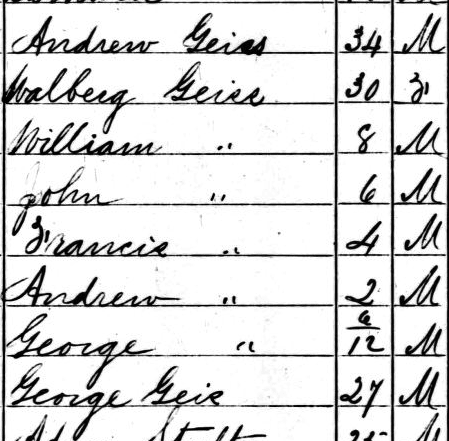 Andrew Geiss 34 M
Walberg Geiss 30 F
William " 8 M
John " 6 M
Francis " 4 M
Andrew " 2 M
George " 6/12 M
George Geis 27 M